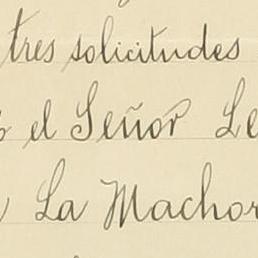 tres solicitudes
el Señor Le
La Machor